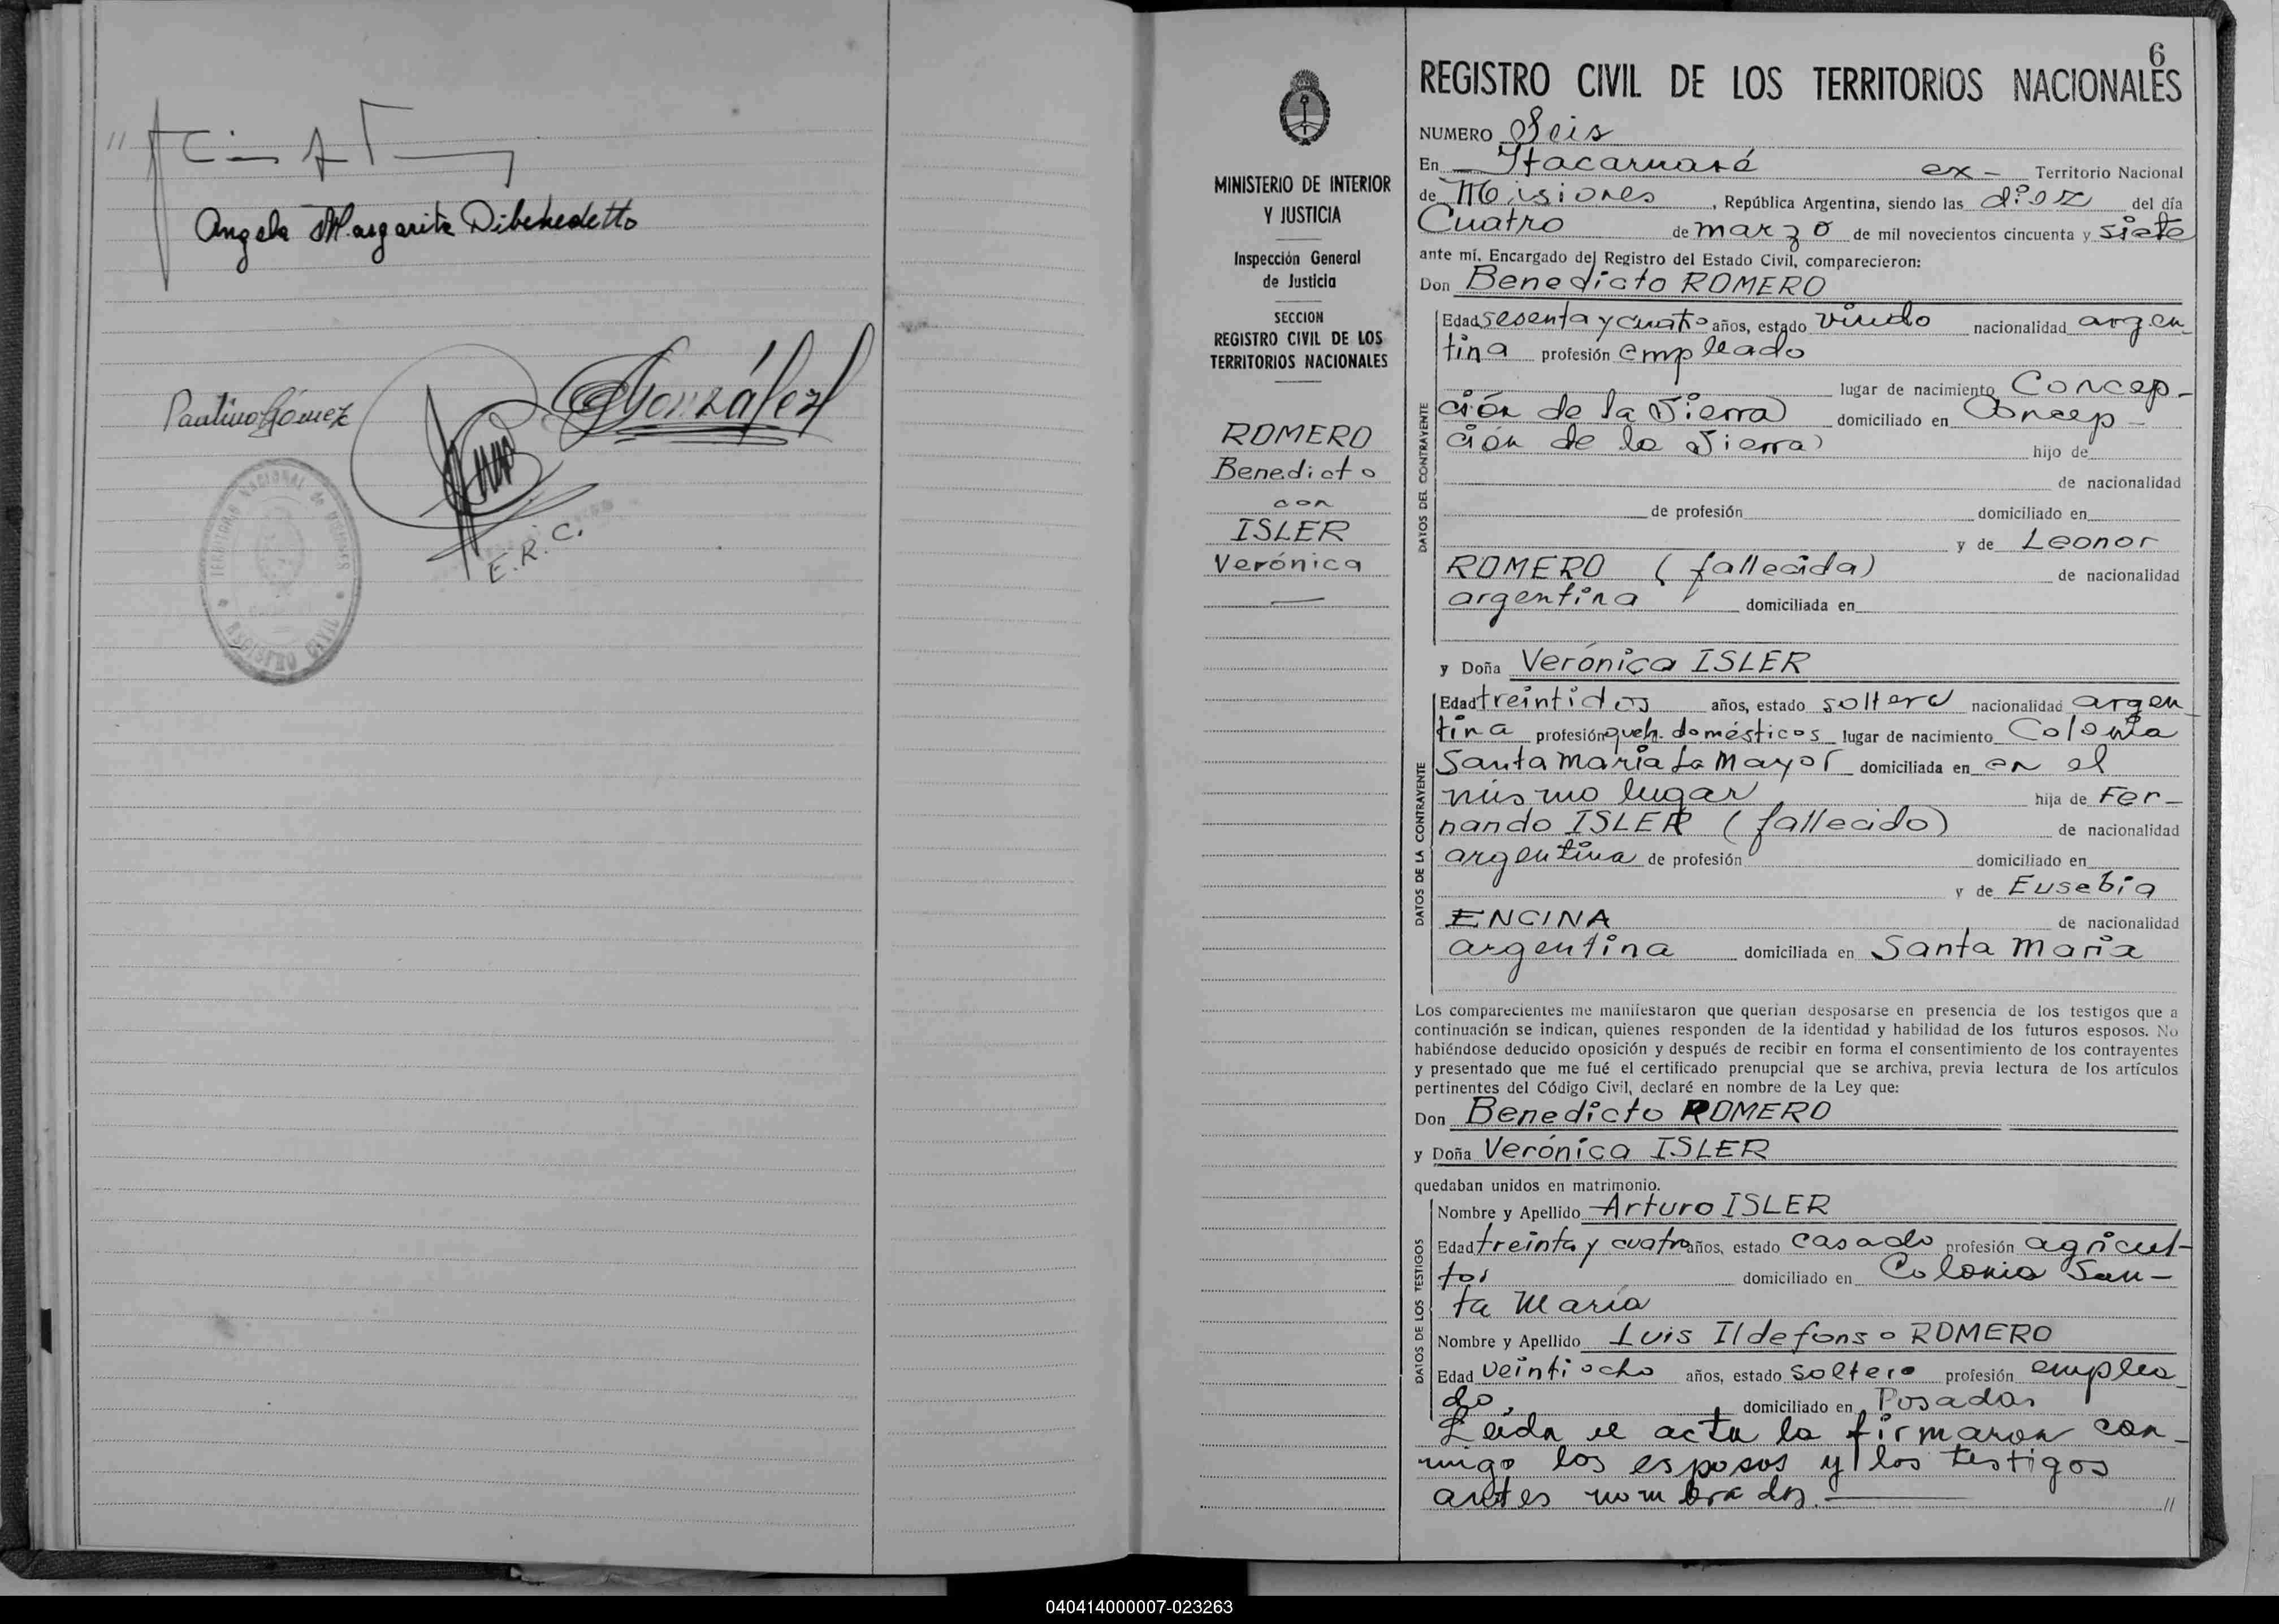 //
Angela Margarita Dibenedetto
Paulino Gómez
González
E. R. C.
TERRITORIO NACIONAL de MISIONES
REGISTRO CIVIL
MINISTERIO DE INTERIOR
Y JUSTICIA
Inspección General
de Justicia
SECCION
REGISTRO CIVIL DE LOS
TERRITORIOS NACIONALES
ROMERO
Benedicto
con
ISLER
Verónica
6
REGISTRO CIVIL DE LOS TERRITORIOS NACIONALES
NUMERO Seis
En Itacaruaré ex- Territorio Nacional
de Misiones, República Argentina, siendo las diez del día
Cuatro de marzo de mil novecientos cincuenta y siete
ante mí, Encargado del Registro del Estado Civil, comparecieron:
Don Benedicto ROMERO
DATOS DEL CONTRAYENTE
Edad sesenta y cuatro años, estado viudo nacionalidad argen-
tina profesión empleado
lugar de nacimiento Concep-
ción de la Sierra domiciliado en Concep-
ción de la Sierra hijo de
de nacionalidad
de profesión domiciliado en
y de Leonor
ROMERO (fallecida) de nacionalidad
argentina domiciliada en
y Doña Verónica ISLER
DATOS DE LA CONTRAYENTE
Edad treintidos años, estado soltera nacionalidad argen-
tina profesión queh. domésticos lugar de nacimiento Colonia
Santa María La Mayor domiciliada en en el
mismo lugar hija de Fer-
nando ISLER (fallecido) de nacionalidad
argentina de profesión domiciliado en
y de Eusebia
ENCINA de nacionalidad
argentina domiciliada en Santa María
Los comparecientes me manifestaron que querían desposarse en presencia de los testigos que a
continuación se indican, quienes responden de la identidad y habilidad de los futuros esposos. No
habiéndose deducido oposición y después de recibir en forma el consentimiento de los contrayentes
y presentado que me fué el certificado prenupcial que se archiva, previa lectura de los artículos
pertinentes del Código Civil, declaré en nombre de la Ley que:
Don Benedicto ROMERO
y Doña Verónica ISLER
quedaban unidos en matrimonio.
DATOS DE LOS TESTIGOS
Nombre y Apellido Arturo ISLER
Edad treinta y cuatro años, estado casado profesión agricul-
tor domiciliado en Colonia San-
ta María
Nombre y Apellido Luis Ildefonso ROMERO
Edad veintiocho años, estado soltero profesión emplea-
do, domiciliado en Posadas
Leída el acta la firmaron con-
migo los esposos y los testigos
antes nombrados. //
040414000007-023263